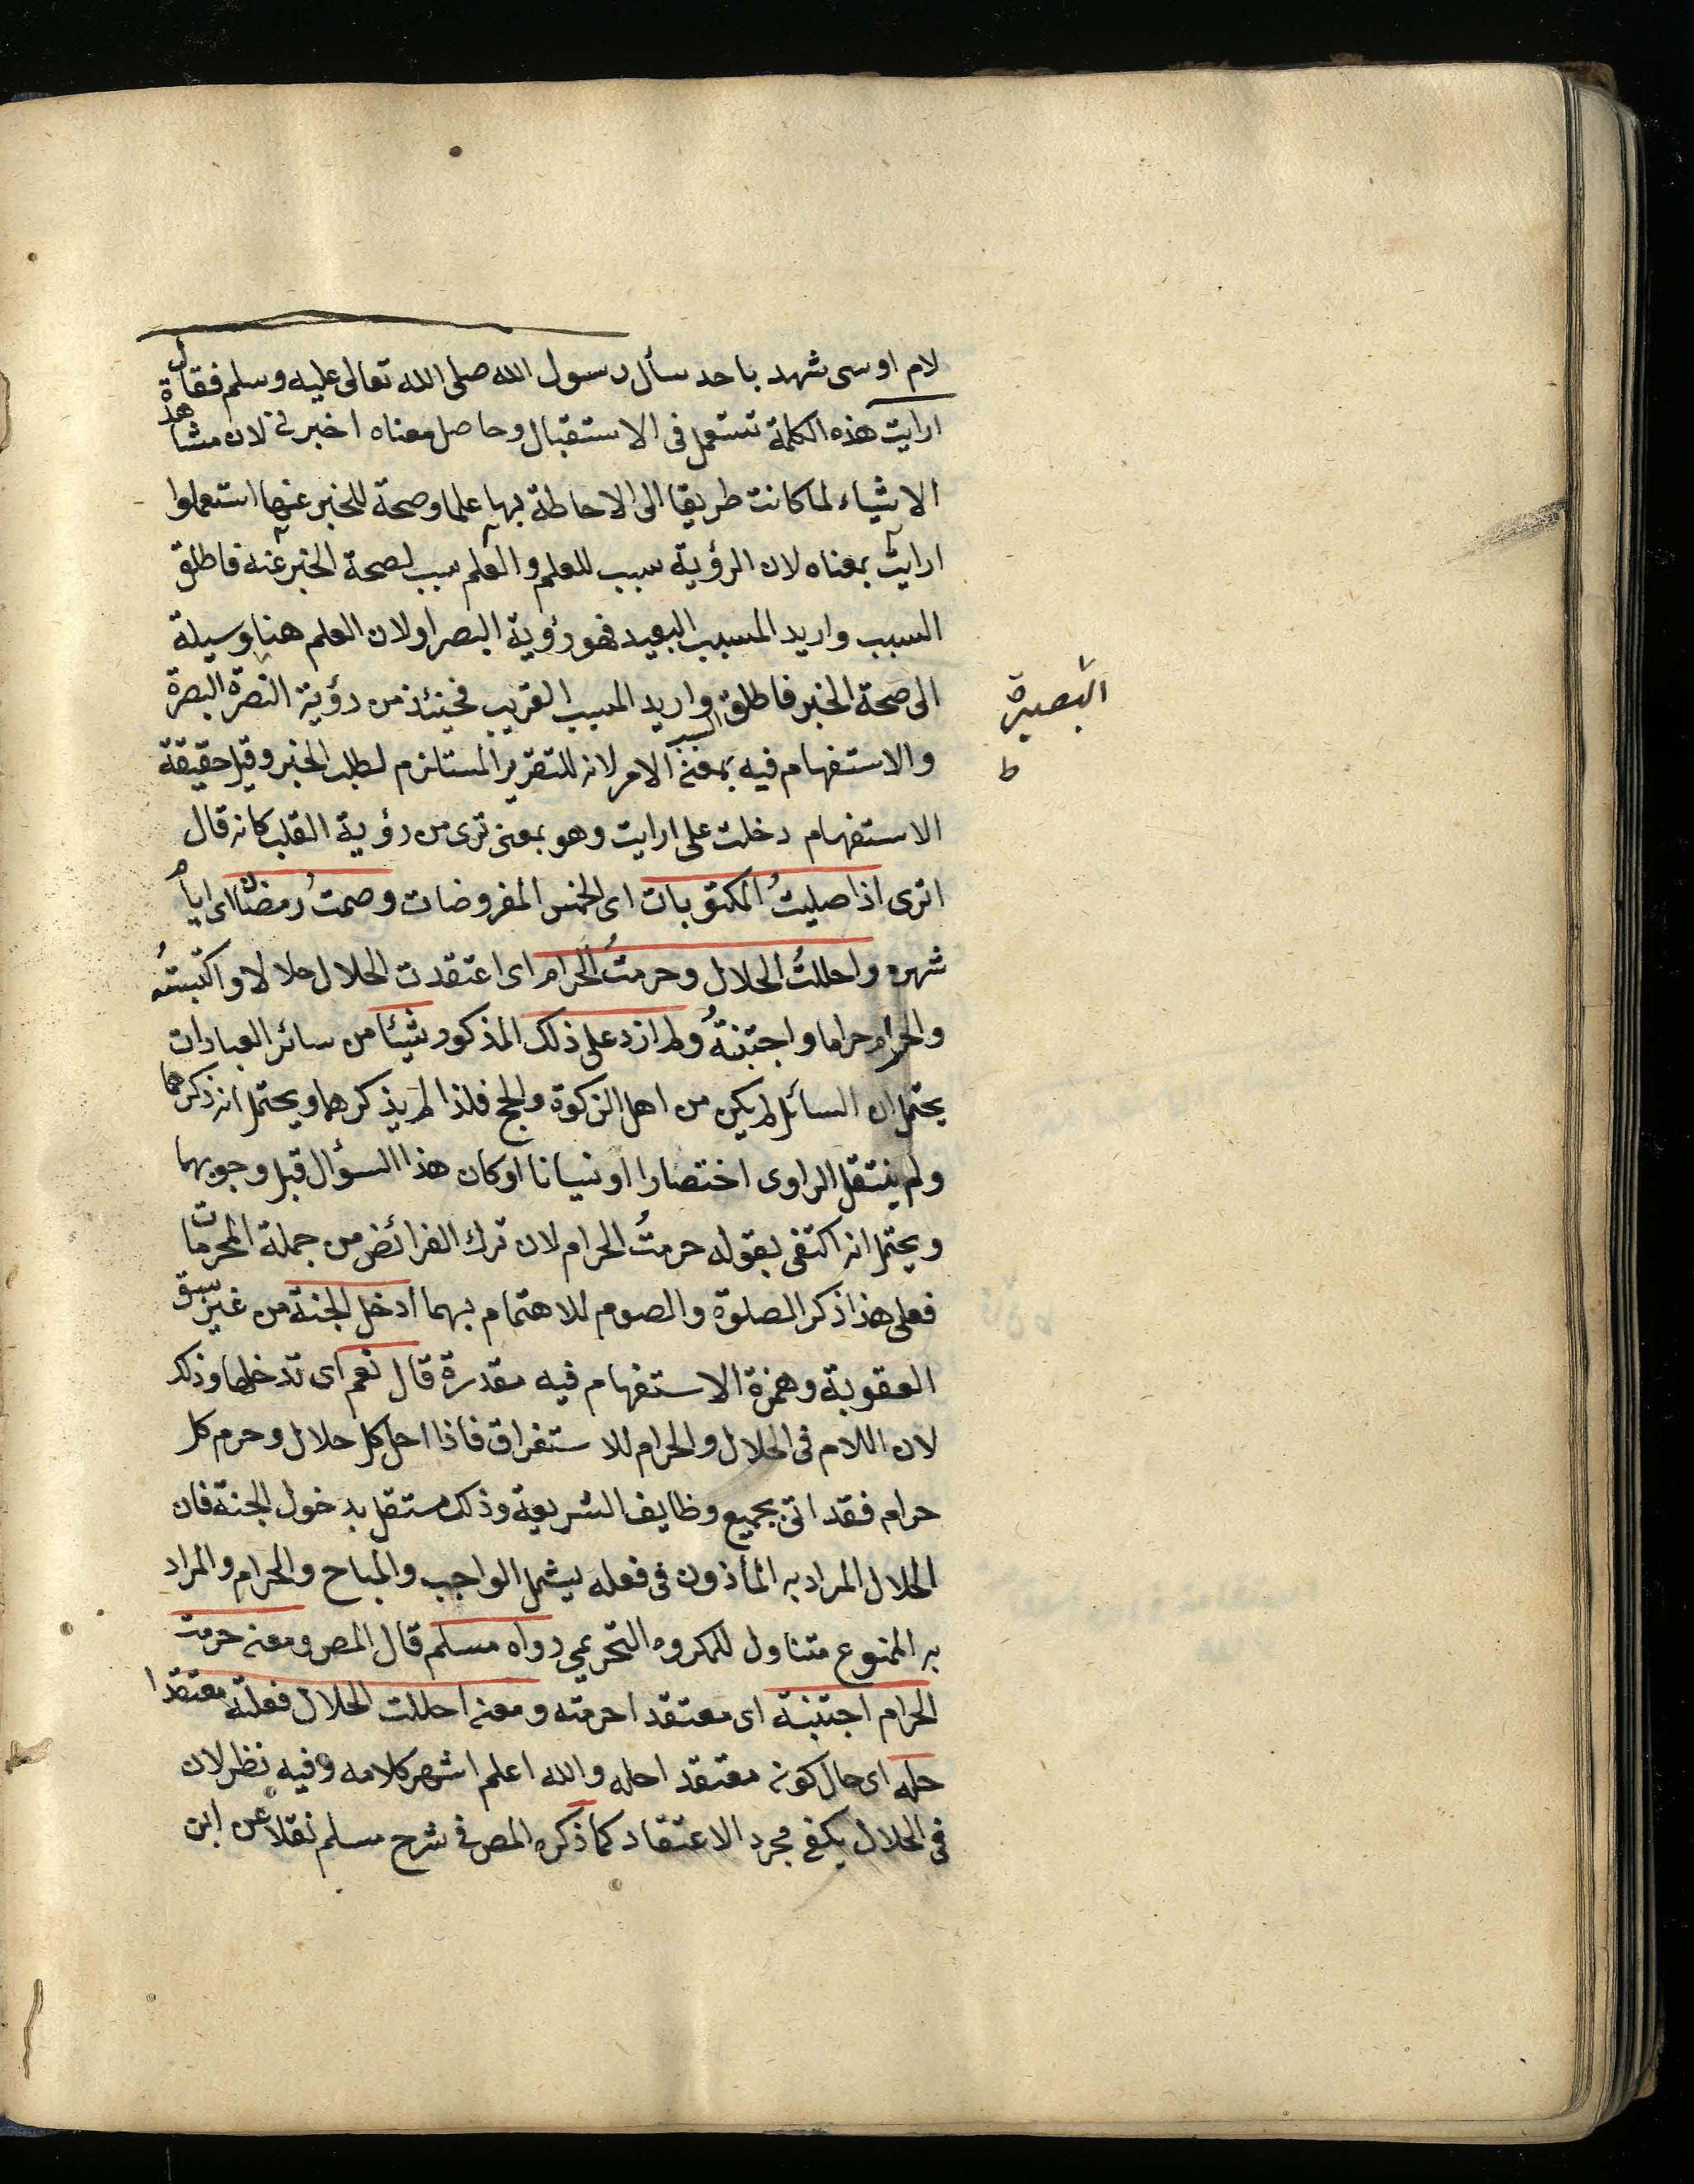 لام اوسى شهد باحد سأل رسول الله صلى الله تعالى عليه وسلم فقال
ارايت هذه الكلمة تستعمل فى الاستقبال وحاصل معناه اخبرنى لان مشاهدة
الاشياء لما كانت طريقا الى الاحاطة بها علما وصحة للخبر عنها استعملوا
ارايت بمعناه لان الرؤية سبب للعلم والعلم سبب لصحة الخبر عنه فاطلق
السبب واريد المسبب البعيد فهو رؤية البصر او لان العلم هنا وسيلة
الى صحة الخبر فاطلق السبب واريد المسبب القريب فحينئذ من رؤية البصرة
البصيرة
ط
والاستفهام فيه بمعنى الامر لانه للتقرير المستلزم لطلب الخبر وقيل حقيقة
الاستفهام دخلت على ارايت وهو بمعنى ترى من رؤية القلب كانه قال
اترى اذا صليتُ المكتوبات اى الخمس المفروضات وصمتُ رمضان اى ايام
شهره واحللتُ الحلال وحرمتُ الحرام اى اعتقدت الحلال حلالا واكتسبتُه
والحرام حراما واجتنبتُه ولم ازد على ذلك المذكور شيئا من سائر العبادات
يحتمل ان السائل لم يكن من اهل الزكوة والحج فلذا لم يذكرهما ويحتمل انه ذكرهما
ولم ينتقل الراوى اختصارا او نسيانا او كان هذا السؤال قبل وجوبهما
ويحتمل انه اكتفى بقوله حرمتُ الحرام لان ترك الفرائض من جملة المحرمات
فعلى هذا ذكر الصلوة والصوم للاهتمام بهما ادخل الجنة من غير سبق
العقوبة وهمزة الاستفهام فيه مقدرة قال نعم اى تدخلها وذلك
لان اللام فى الحلال والحرام للاستغراق فاذا احل كل حلال وحرم كل
حرام فقد اتى بجميع وظايف الشريعة وذلك مستقل بدخول الجنة فان
الحلال المراد به المأذون فى فعله يشمل الواجب والمباح والحرام والمراد
به الممنوع متناول للمكروه التحريمي رواه مسلم قال المص ومعنى حرمت
الحرام اجتنبته اى معتقدا حرمته ومعنى احللت الحلال فعلته معتقدا
حله اى حال كونه معتقدا حله والله اعلم اشهر كلامه وفيه نظر لان
فى الحلال يكفى مجرد الاعتقاد كما ذكره المص فى شرح مسلم نقلا عن ابن